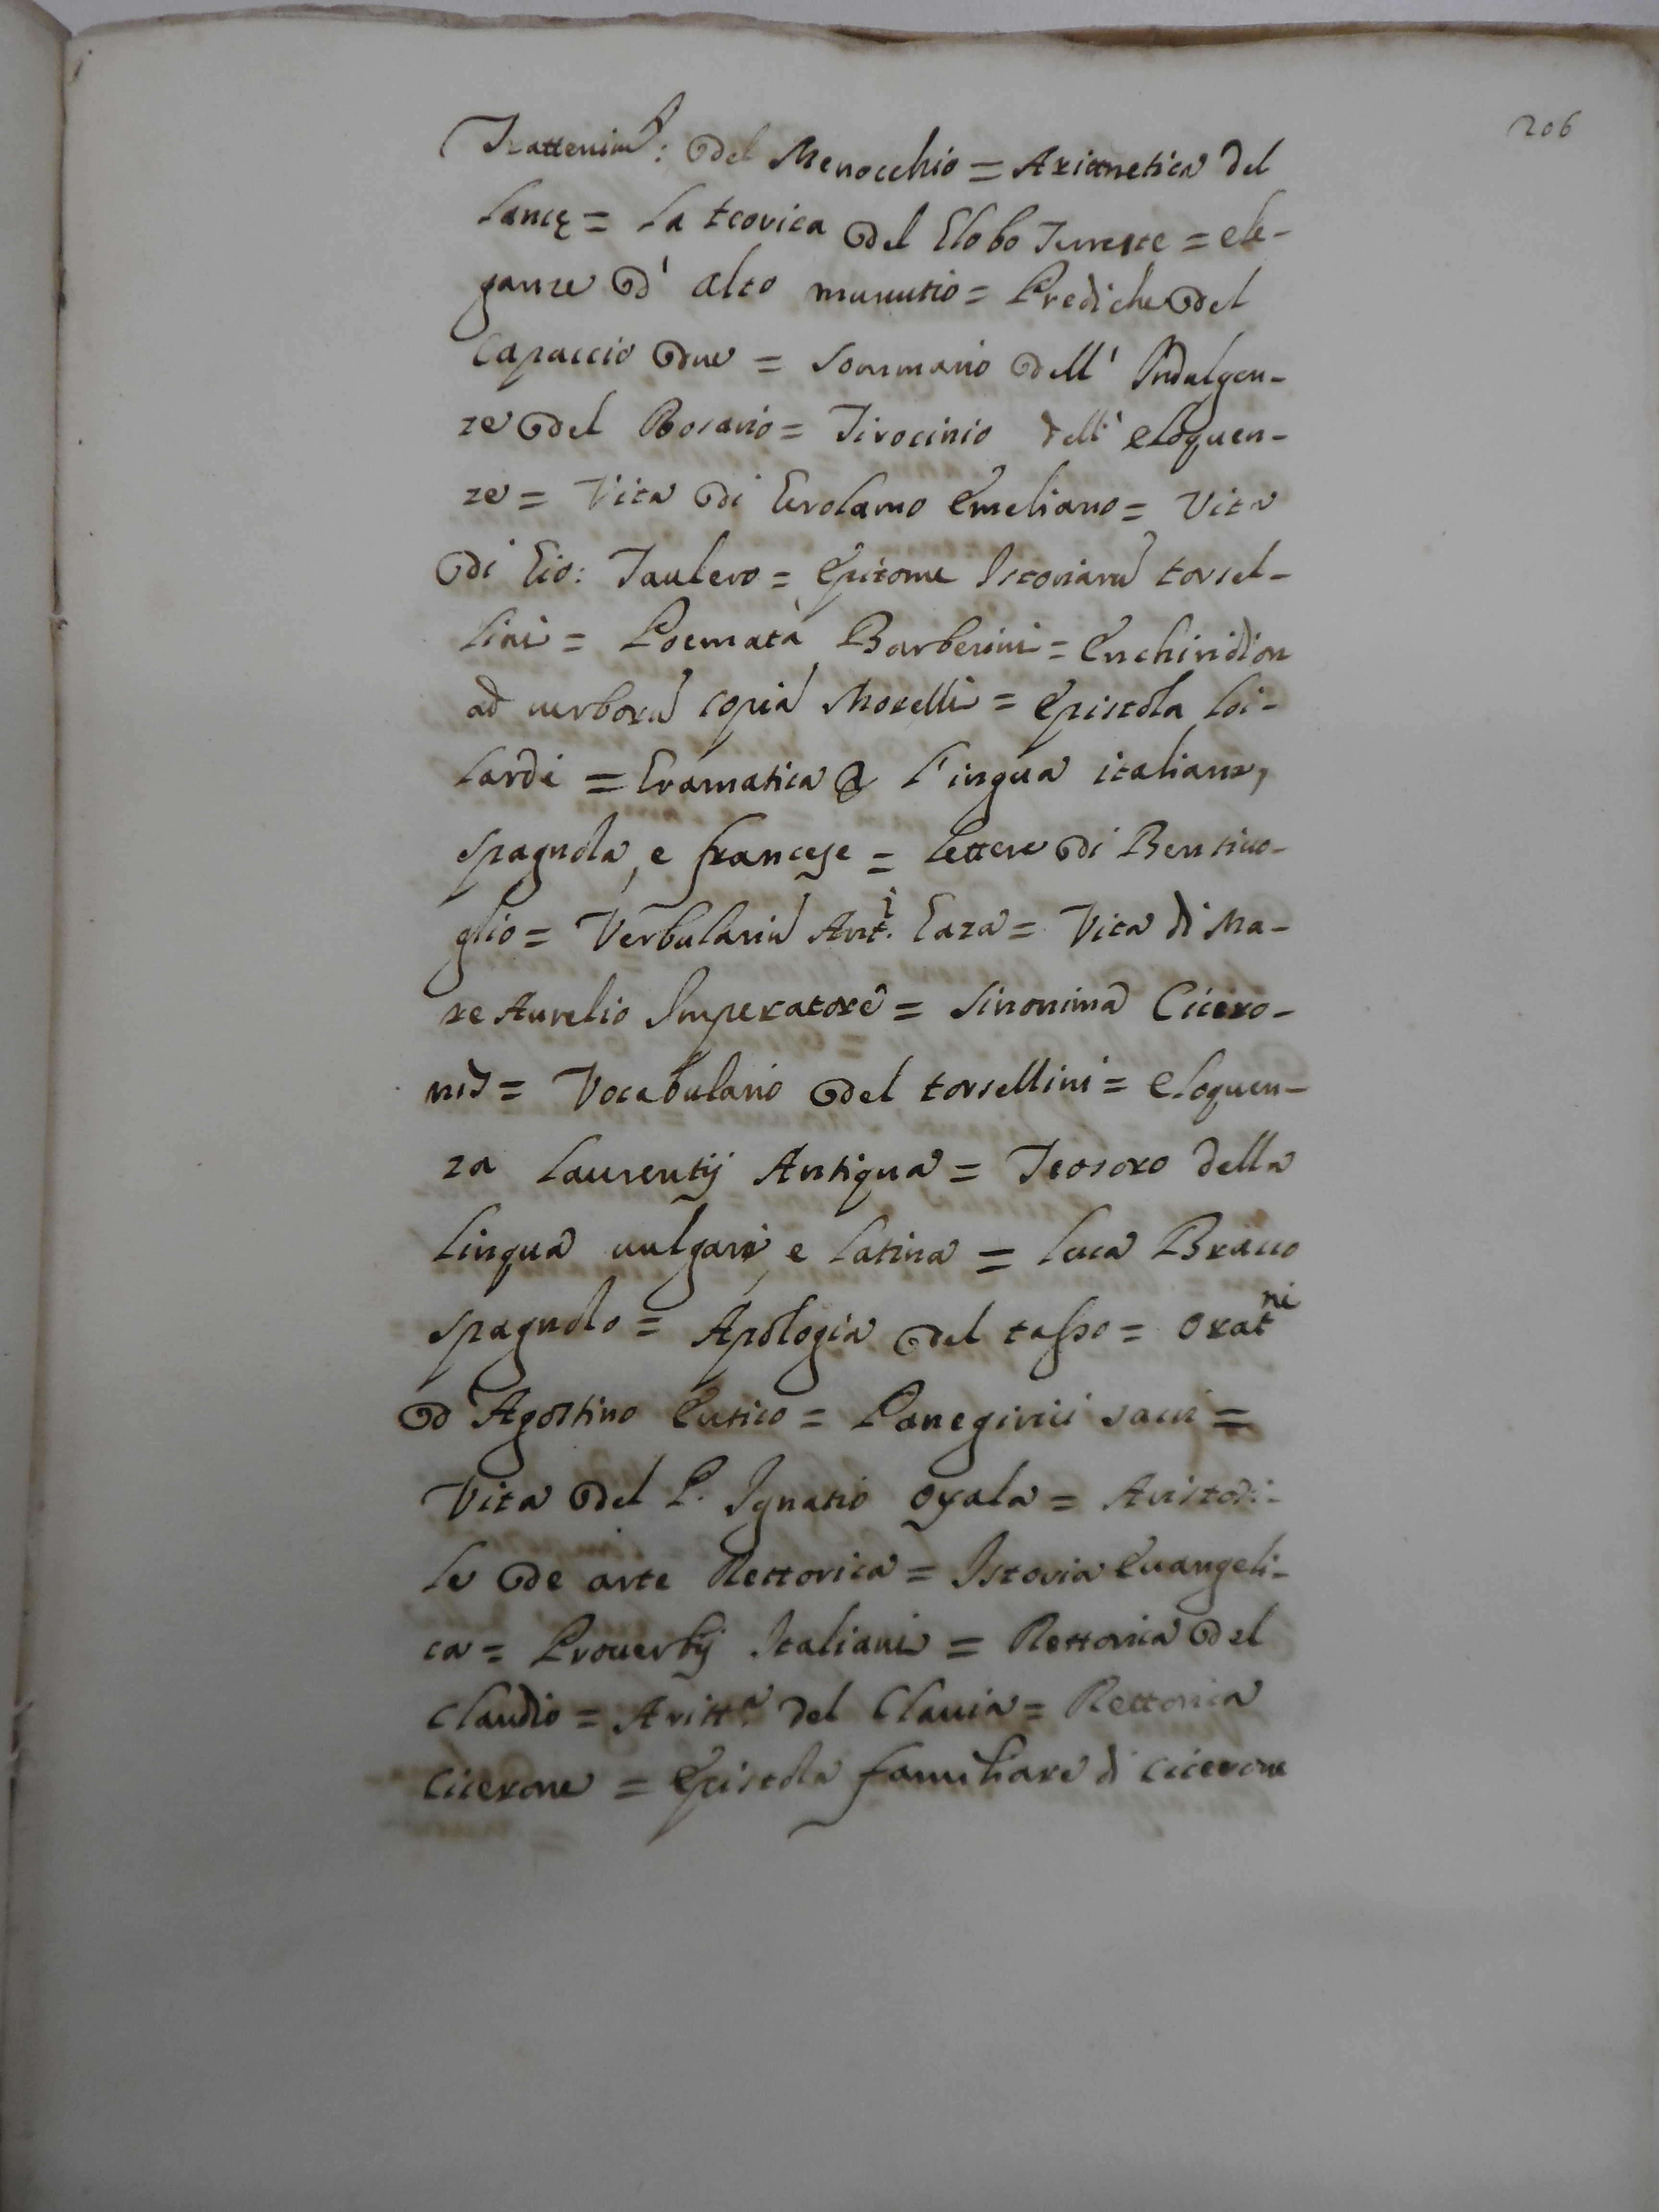 206
Trattenim: del Menocchio = Aritmetica del
Lance = La teorica del Globo Terreste = ele-
ganze d' alto manutio = Prediche del
Capaccio due = Sommario dell' Indulgen-
ze del Rosario = Tirocinio dell' eloquen-
ze = Vita di Gerolamo Emeliano = Vita
di Gio: Taulero = Epitome Istoriarũ torsel-
lini = Poemata Barberini = Enchiridion
ad verborũ copiã Morelli = Epistola Loi-
lardi = Gramatica & Lingua italiana,
spagnola, e francese = Lettere di Bentivo-
glio = Verbulariũ Ant.i Gaza = Vita di Ma-
re Aurelio Imperatore = Sinonima Cicero-
nis = Vocabulario del torsellini = Eloquen-
za Laurentij Antiqua = Teosoro della
Lingua vulgare, e latina = Luca
spagnolo = Apologia del tasso = Orat.ni
d Agostino = Panegirici sacri =
Vita del P. Ignatio Oyala = Aristoti-
le de arte Rettorica = Istoria Evangeli-
ca = Proverbij Italiani = Rettorica del
Claudio = Aritt.a del Clavia = Rettorica
Cicerone = Epistola familiare di Cicerone